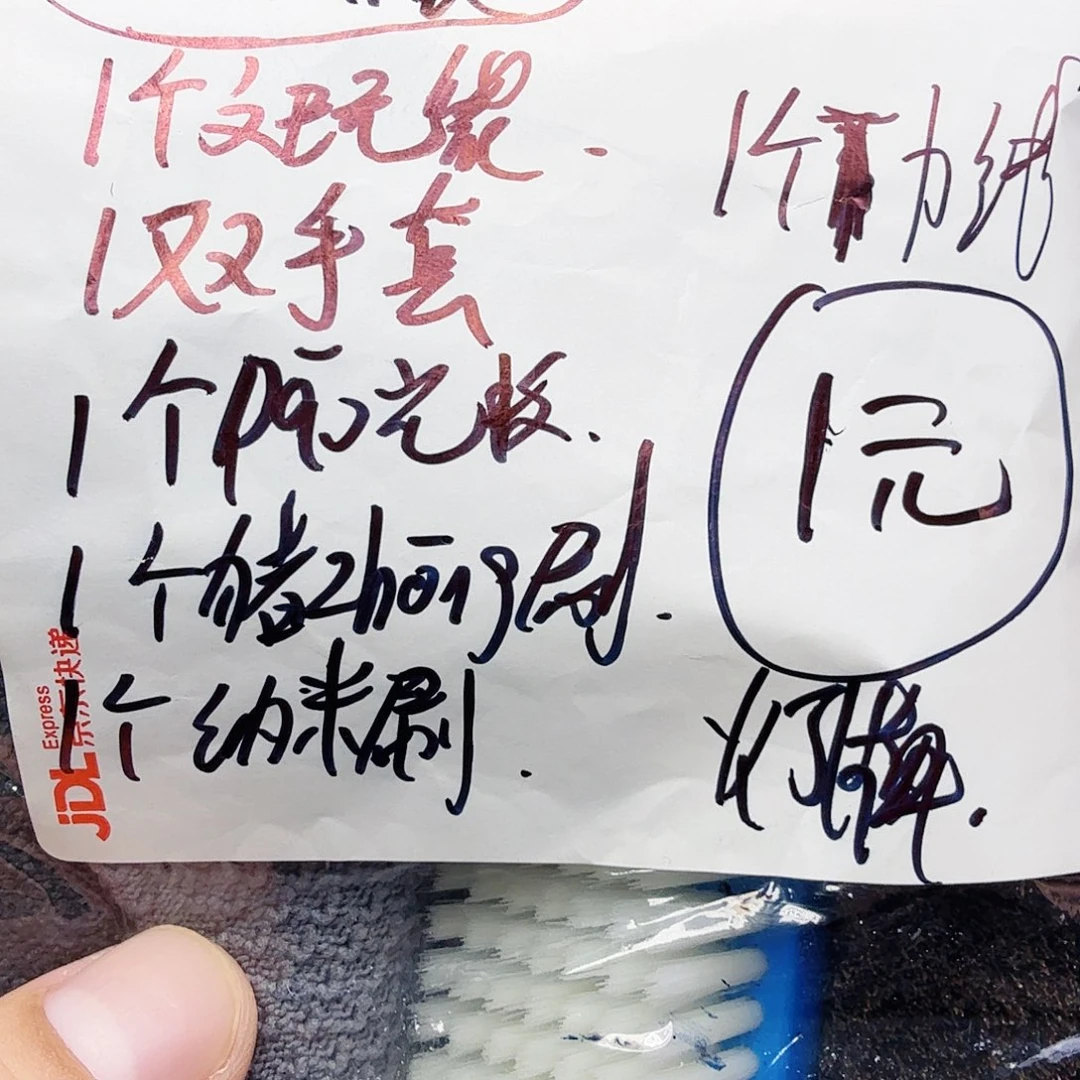 1个文玩袋.
1双手套
1个pāo光板.
1个猪zhōng刷.
1个纳米刷.
1个 力绳
1元
JDL 京东快递
Express